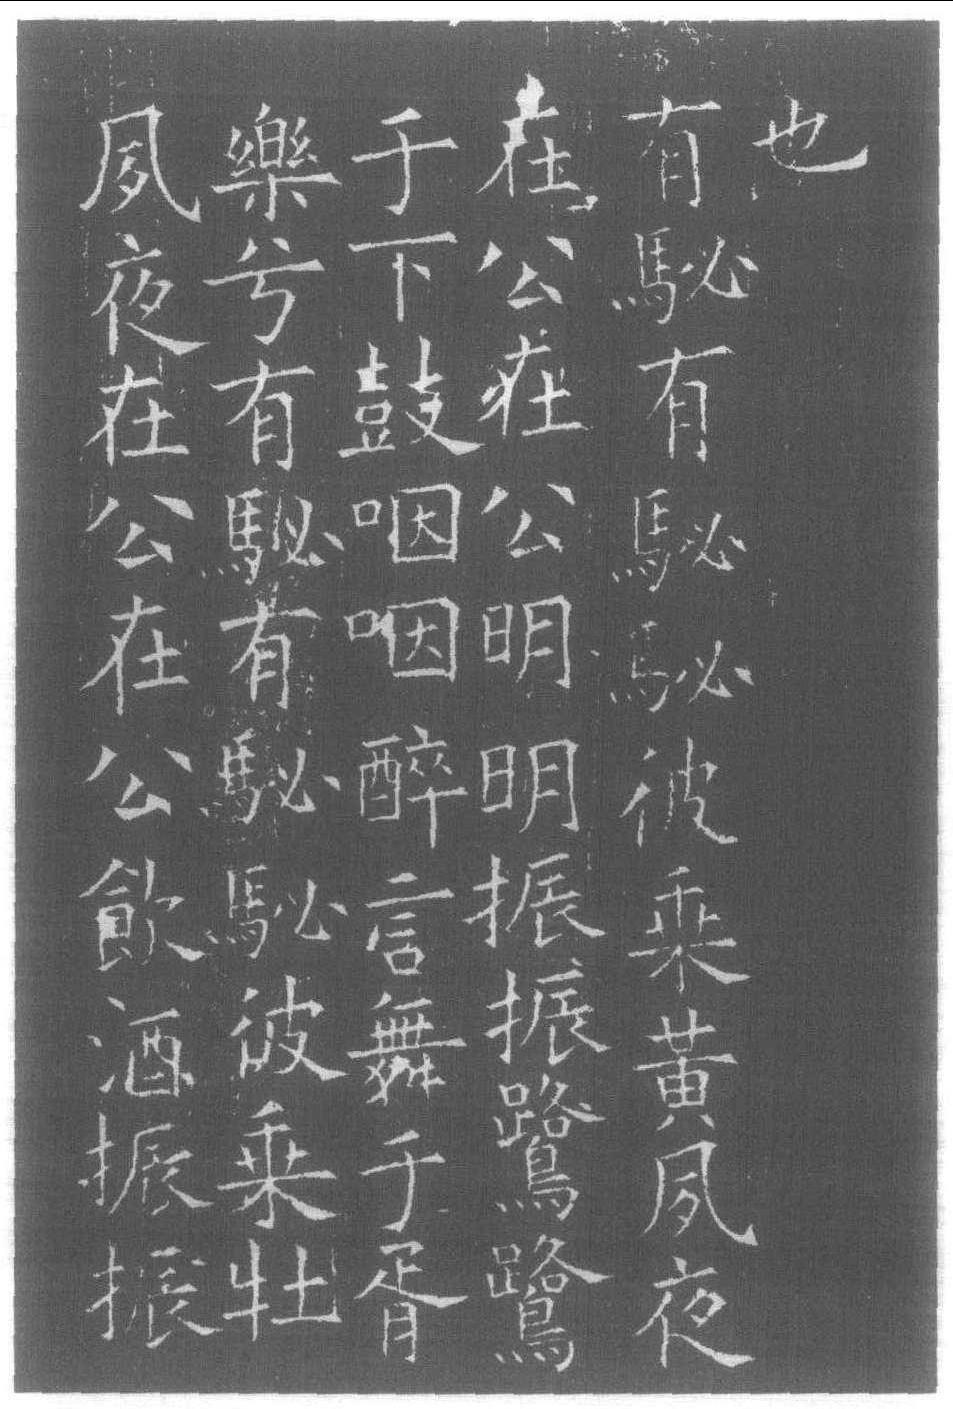 也
有駜有駜駜彼乗黃夙夜
在公在公明明振振鷺鷺
于下鼓咽咽醉言舞于胥
樂兮有駜有駜駜彼乗牡
夙夜在公在公飲酒振振